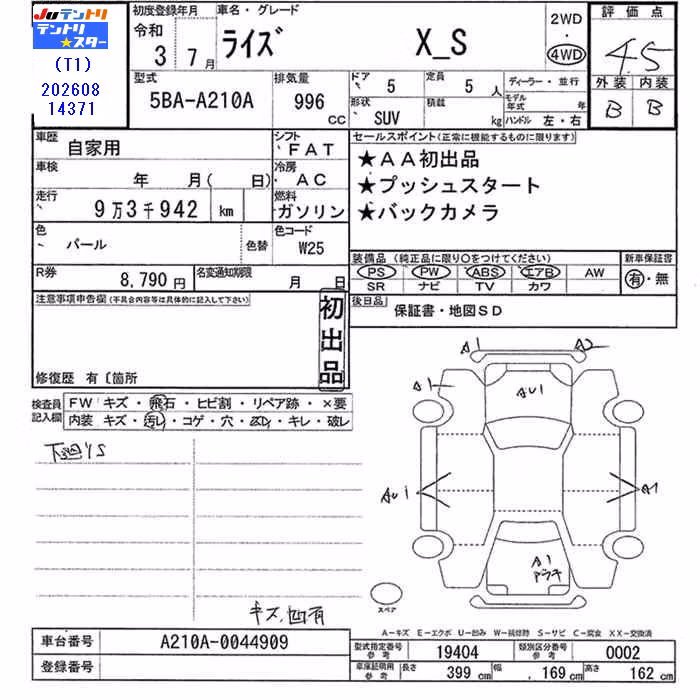 Juテントリ
テントリ★スター
(T1)
202608
14371
初度登録年月
令和
3 7月
車名・グレード
ライズ X_S
2WD
・
4WD
評価点
4.5
外装 内装
B B
型式
5BA-A210A
排気量
996 CC
ドア 5
定員 5人
形状 SUV
積載 kg
ディーラー・並行
モデル年式 年
ハンドル 左・右
車歴 自家用
シフト FAT
車検 年 月( 日)
冷房 AC
走行 9万3千942 km
燃料 ガソリン
色 パール 色替
色コード W25
R券 8,790円
名変通知期限 月 日
セールスポイント(正常に機能するものに限ります)
★AA初出品
★プッシュスタート
★バックカメラ
装備品(純正品に限り○をつけてください)
PS PW ABS エアB AW
SR ナビ TV カワ
新車保証書
有・無
後日品 保証書・地図SD
注意事項申告欄(不具合内容等は具体的に記入して下さい)
初出品
修復歴 有〔箇所
検査員記入欄
FW キズ・飛石・ヒビ割・リペア跡・×要
内装 キズ・汚レ・コゲ・穴・・キレ・破レ
下廻りS
キズ,凹有
A1 A2
A1
AU1
AU1
A1
A1
スペア
A-キズ E-エクボ U-凹み W-補修跡 S-サビ C-腐食 XX-交換済
車台番号 A210A-0044909
登録番号
型式指定番号参考 19404
類別区分番号参考 0002
車庫証明用参考 長さ 399cm 幅 169cm 高さ 162cm